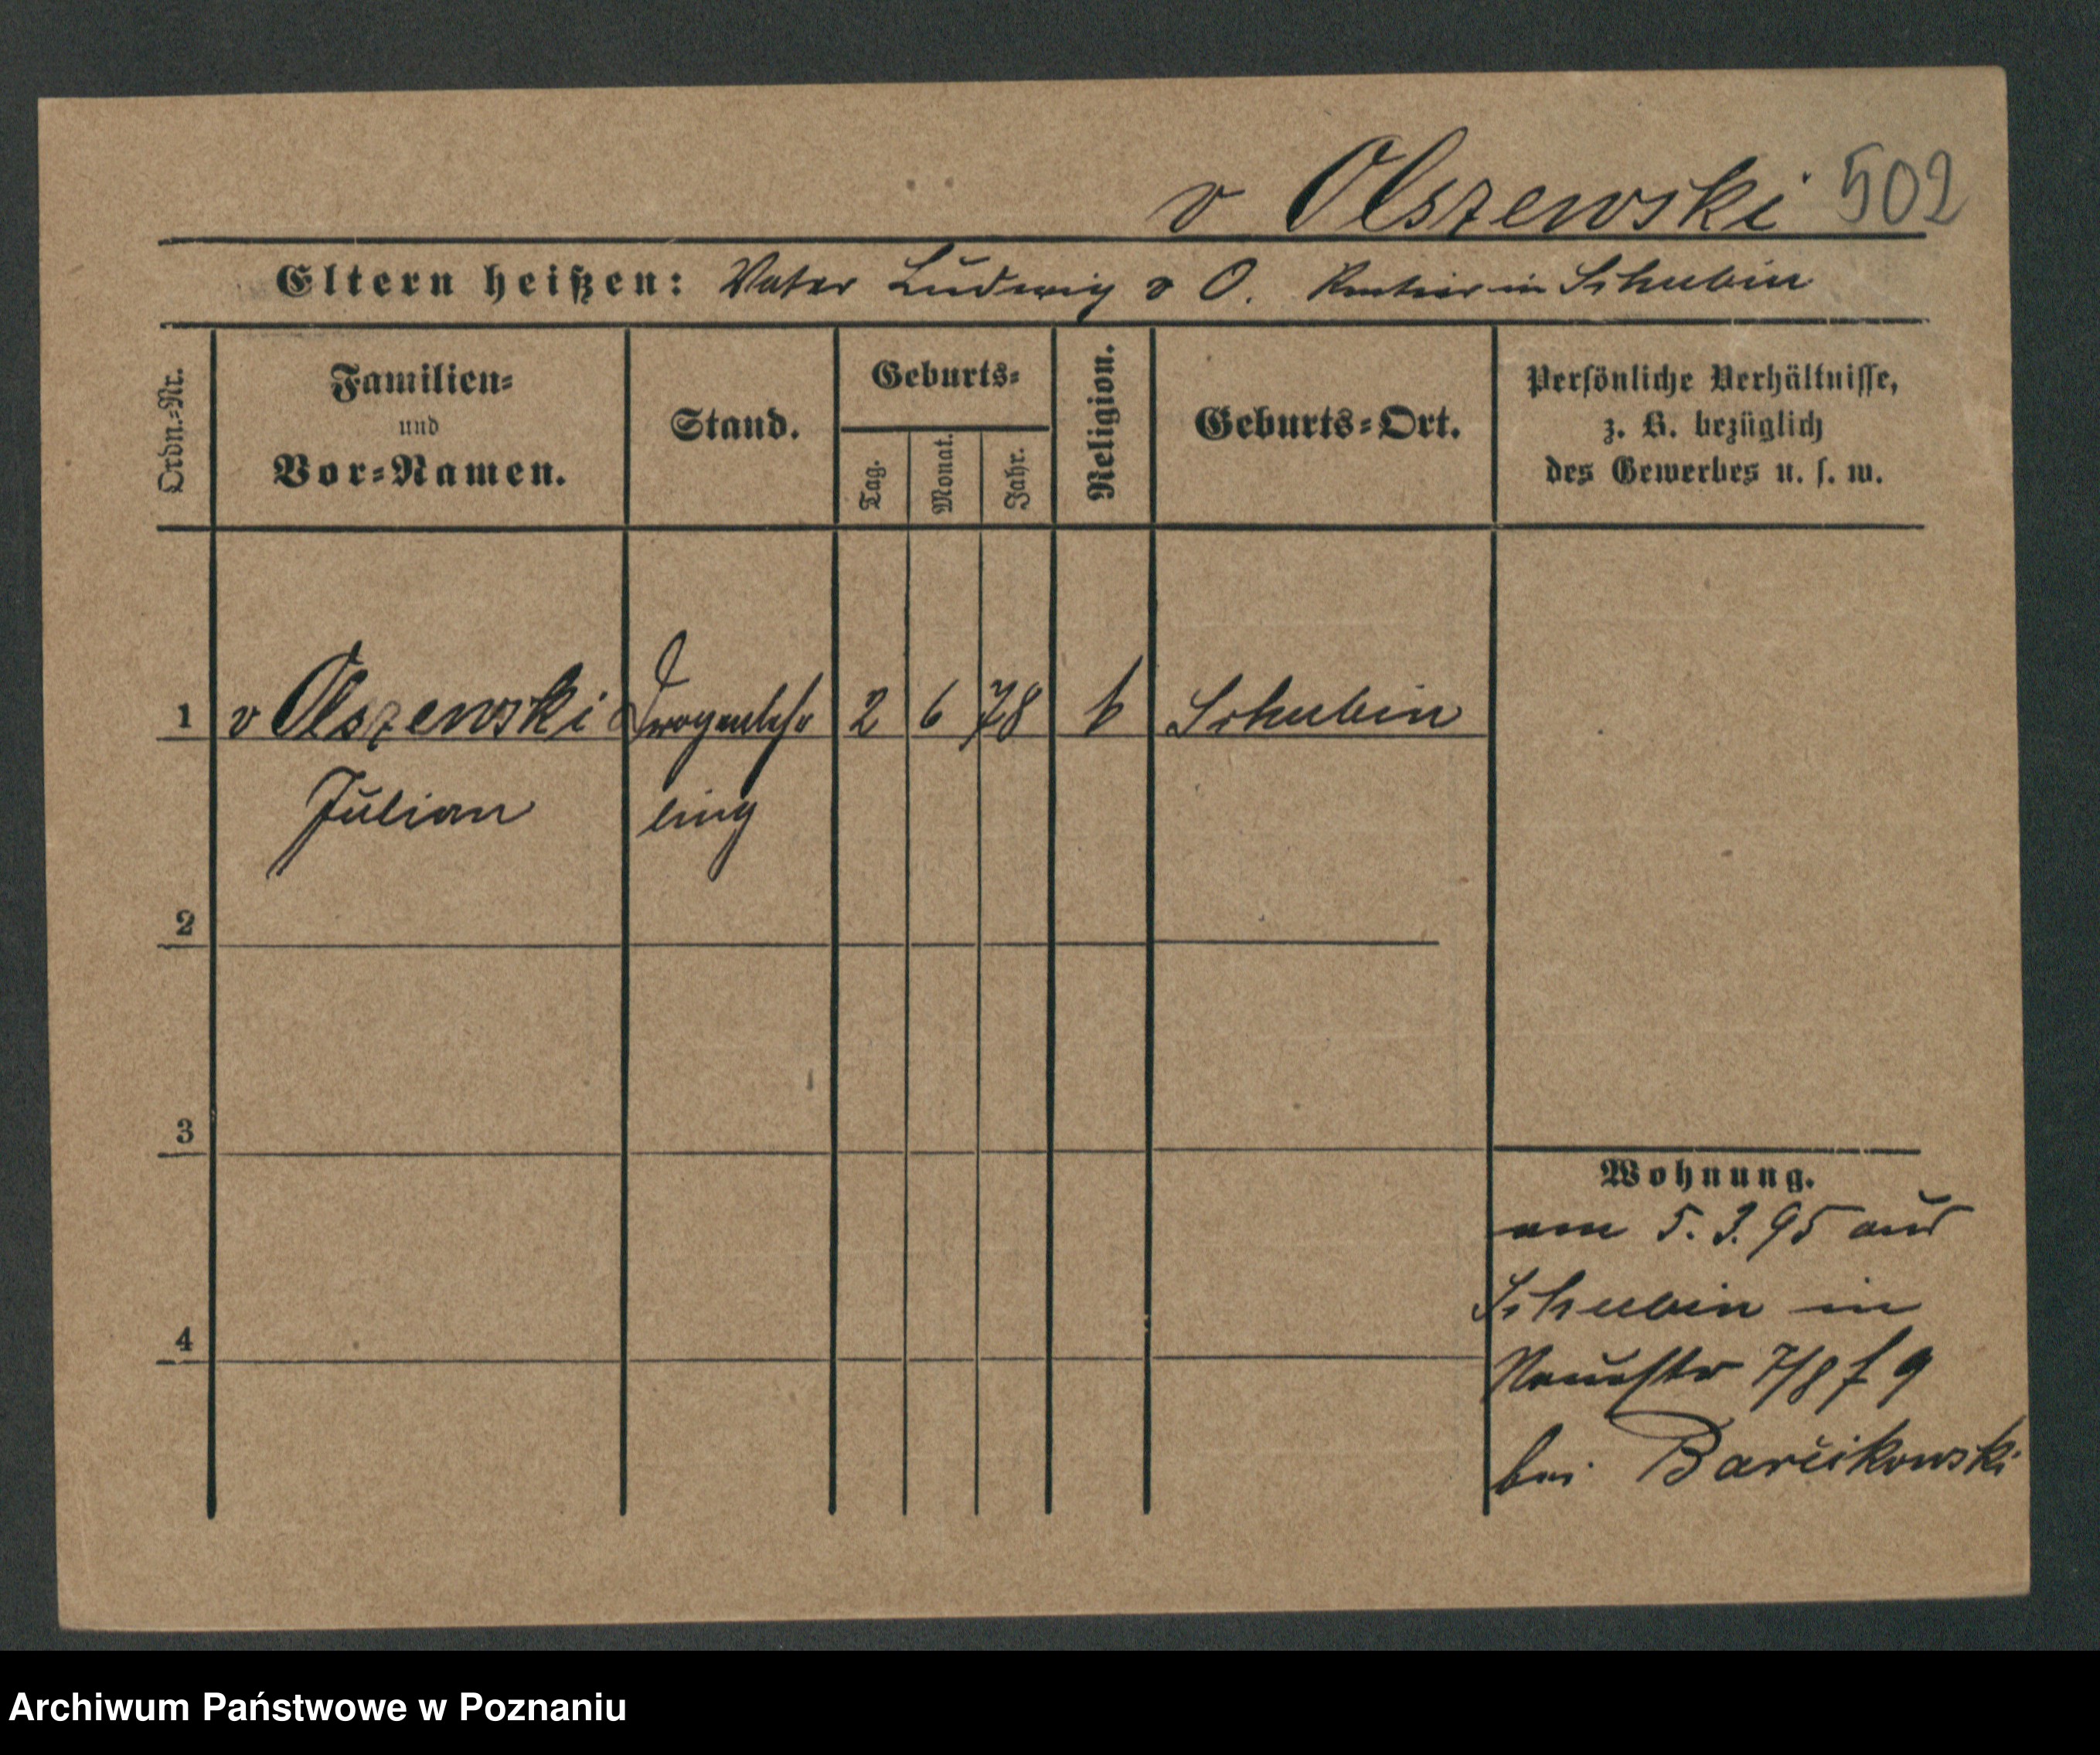 v Olszewski 502
Eltern heißen: Vater Ludwig v O. Rentier in Schubin
Ordn.=Nr.
Familien=
und
Vor=Namen.
Stand.
Geburts=
Tag.
Monat.
Jahr.
Religion.
Geburts=Ort.
Persönliche Verhältnisse,
z. B. bezüglich
des Gewerbes u. s. w.
1 v Olszewski Drogenlehr 2 6 78 k Schubin
Julian ling
2
3
4
Wohnung.
am 5. 3. 95 aus
Schubin in
Neuestr 7/8 f 9
bei Barcikowski
Archiwum Państwowe w Poznaniu